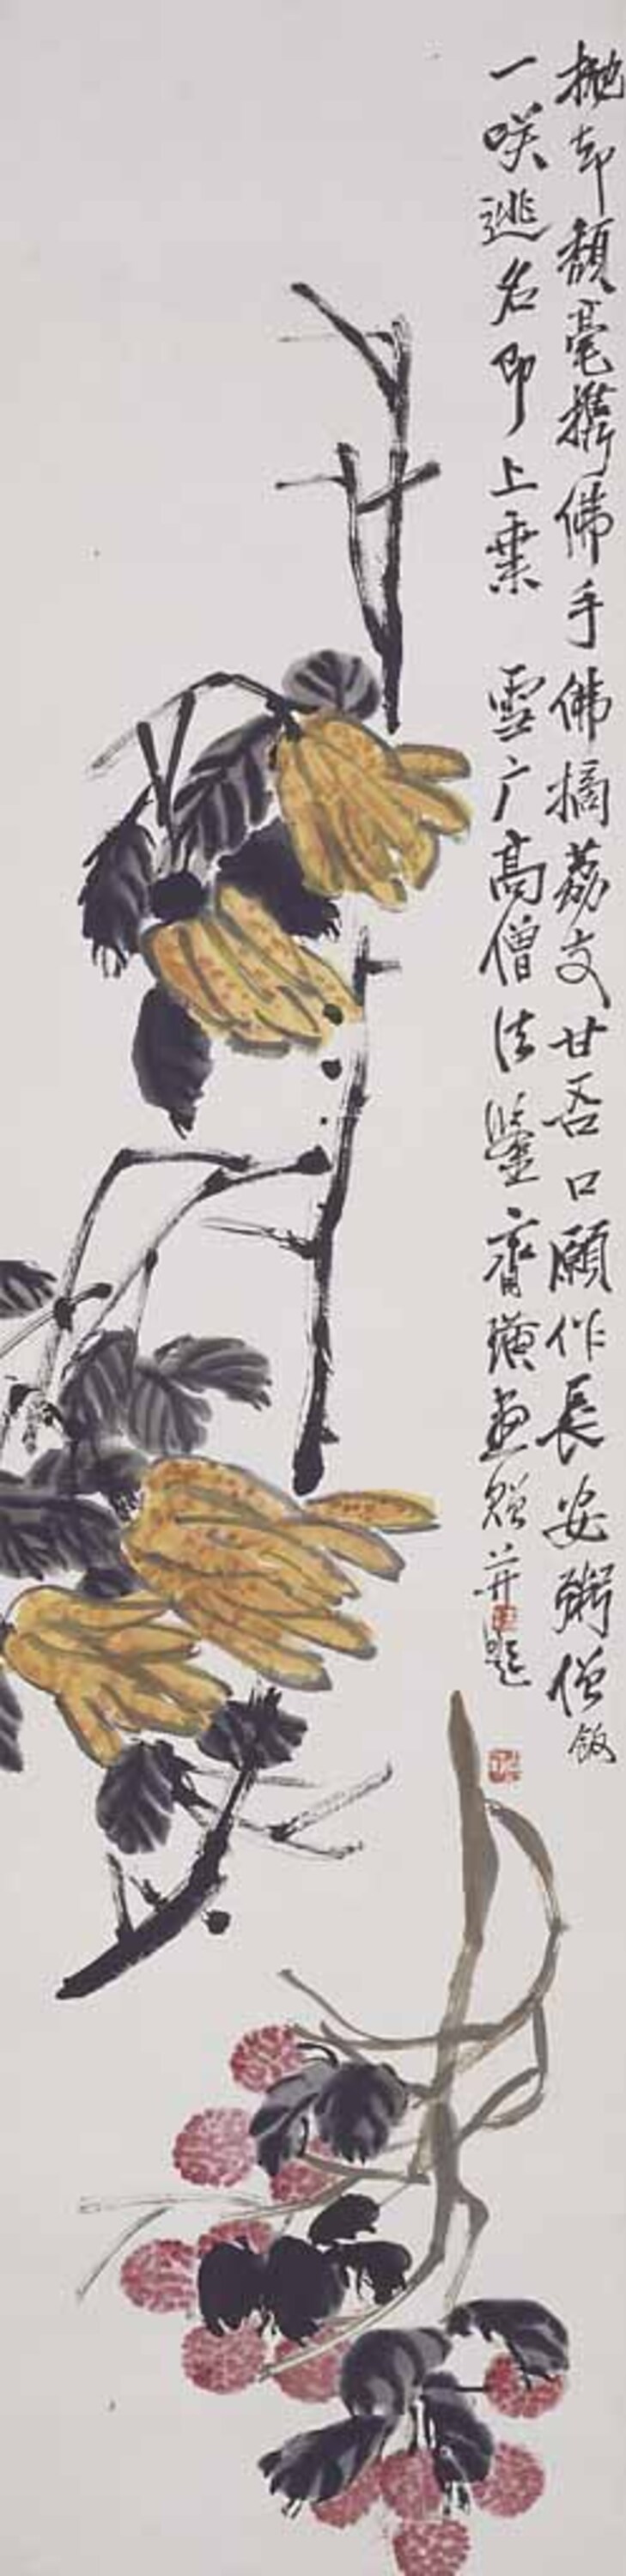 拋却頹毫攜佛手佛摘荔支甘吾口願作長安粥僧飯
一咲逃名即上乘　雪广高僧法鑒齊璜畫贈并題